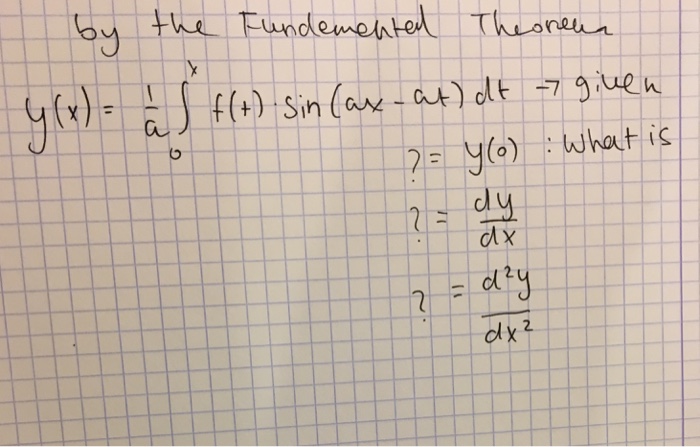 by the Fundemental Theorem
y(x) = 1/a ∫₀ˣ f(t) · sin(ax - at) dt → given
? = y(0) : What is
? = dy/dx
? = d²y/dx²